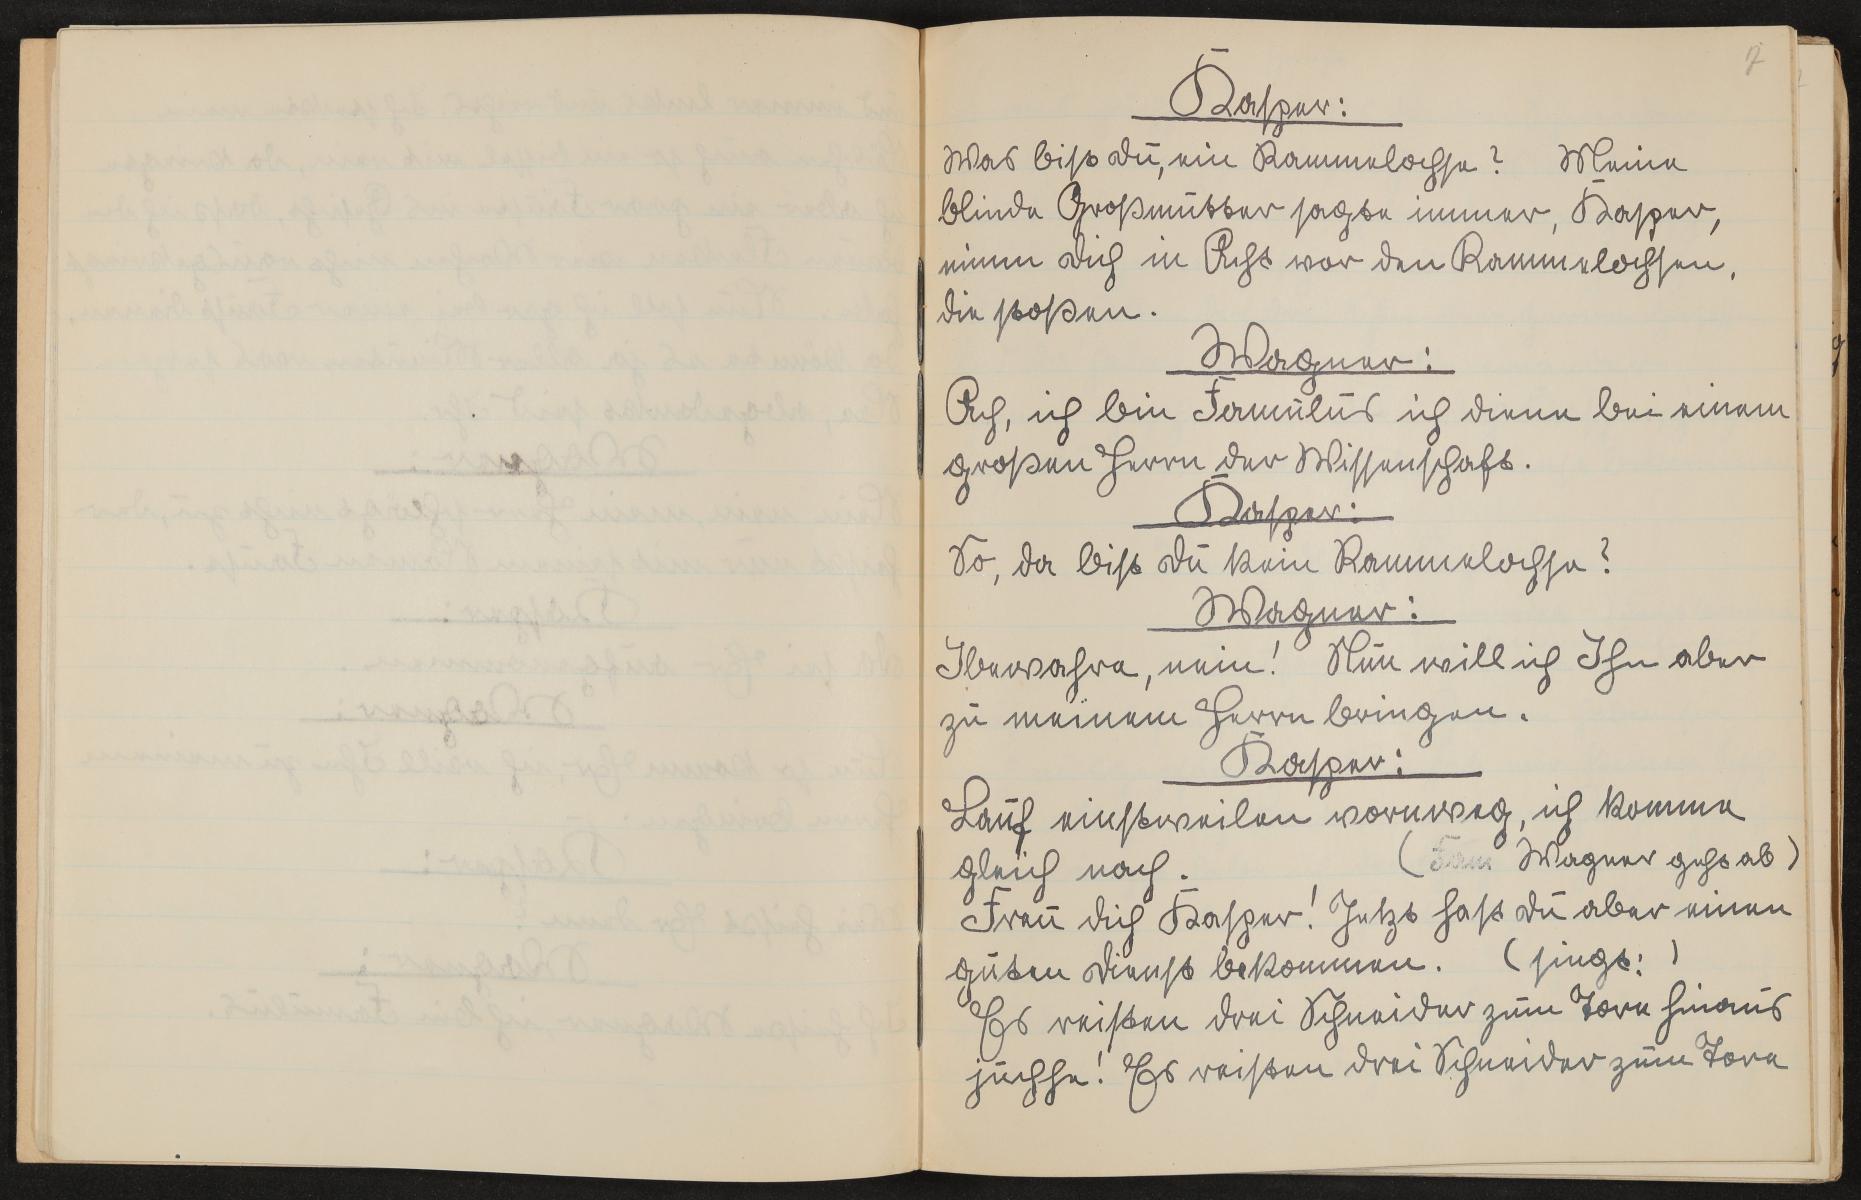 7
Kasper:
Was bist du, ein Rammelochse? Meine
blinde Großmutter sagte immer, Kasper,
nimm dich in Acht vor den Rammelochsen,
die stoßen.
Wagner:
Ach, ich bin Famulus ich diene bei einem
großen Herrn der Wissenschaft.
Kasper:
So, da bist du kein Rammelochse?
Wagner:
Ibewahre, nein! Nun will ich Ihn aber
zu meinem Herrn bringen.
Kasper:
Lauf einstweilen vorneweg, ich komme
gleich nach. (Fam Wagner geht ab)
Freu dich Kasper! Jetzt hast du aber einen
guten Dienst bekommen. (singt:)
Es reisten drei Schneider zum Tore hinaus
juchhe! Es reisten drei Schneider zum Tore